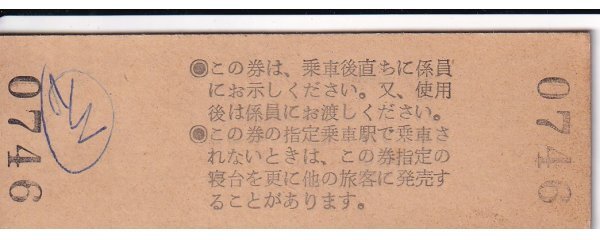 0746
◉この券は、乗車後直ちに係員
にお示しください。又、使用
後は係員にお渡しください。
◉この券の指定乗車駅で乗車さ
れないときは、この券指定の
寝台を更に他の旅客に発売す
ることがあります。
0746